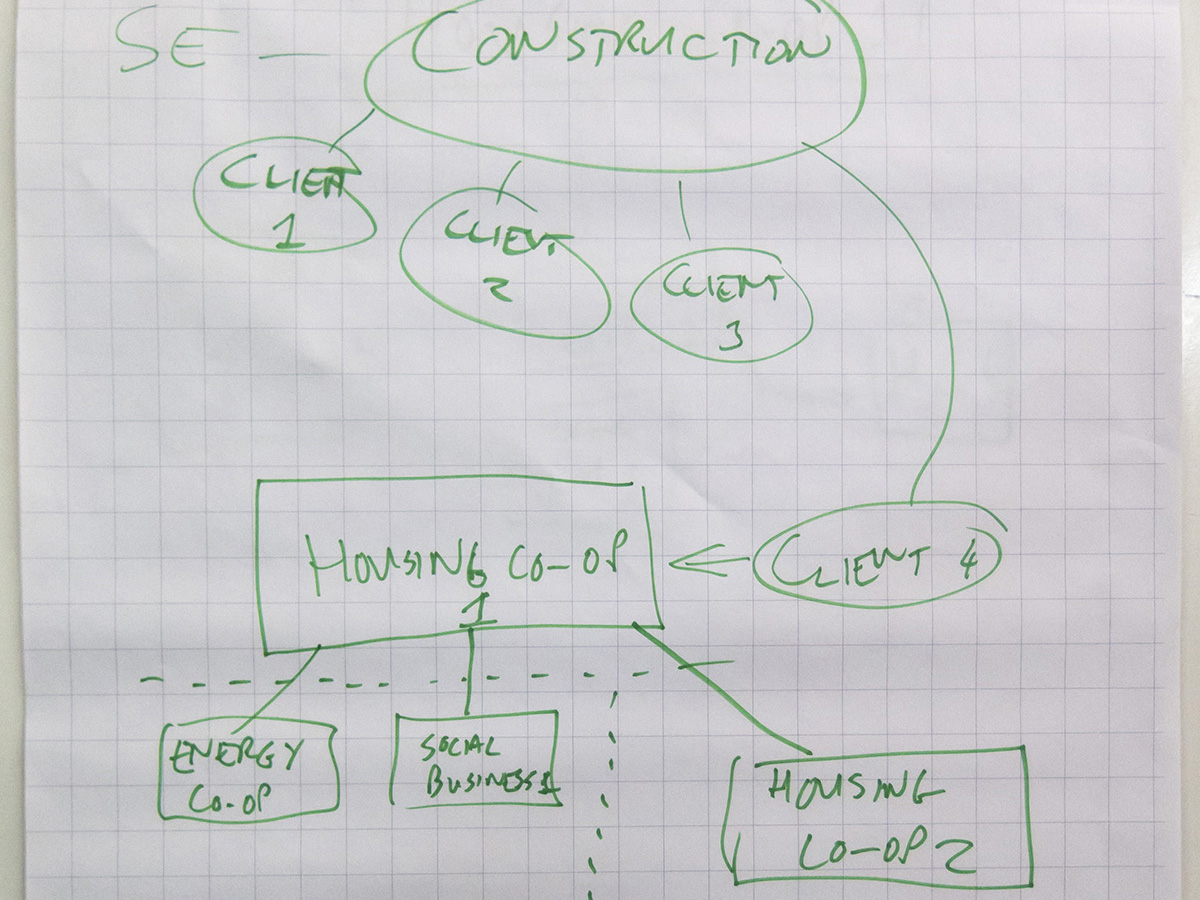 SE — CONSTRUCTION
CLIENT
1
CLIENT
2
CLIENT
3
HOUSING CO-OP
1
CLIENT 4
ENERGY
CO-OP
SOCIAL
BUSINESS 1
HOUSING
CO-OP 2